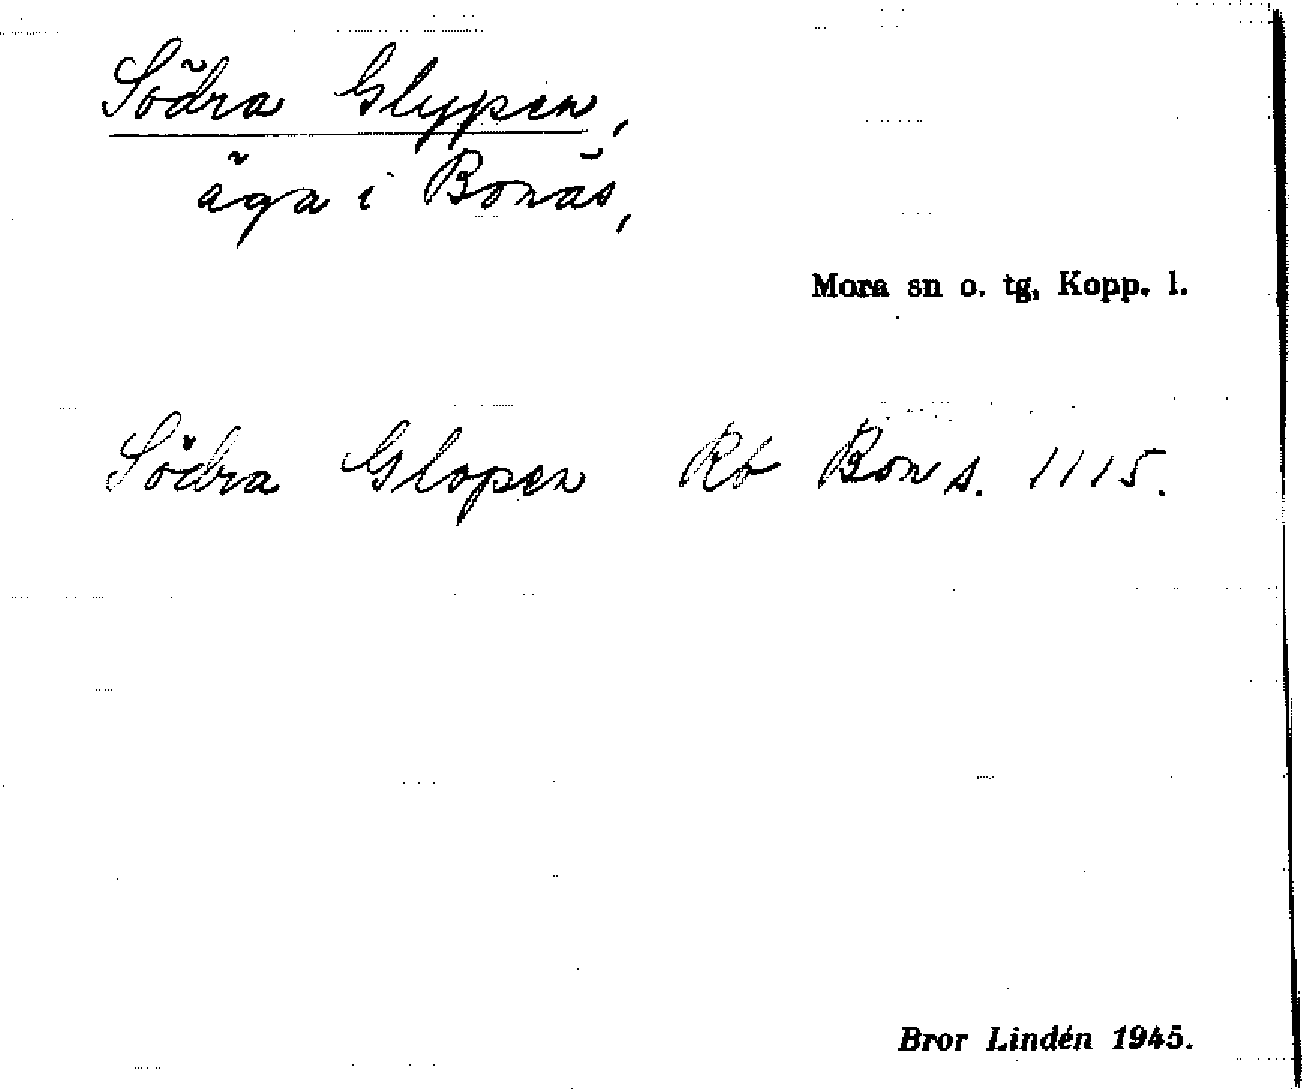 Södra Glypen,
äga i Bonäs,
Mora sn o. tg, Kopp. l.
Södra Glopen Rb Bon s. 1115.
Bror Lindén 1945.